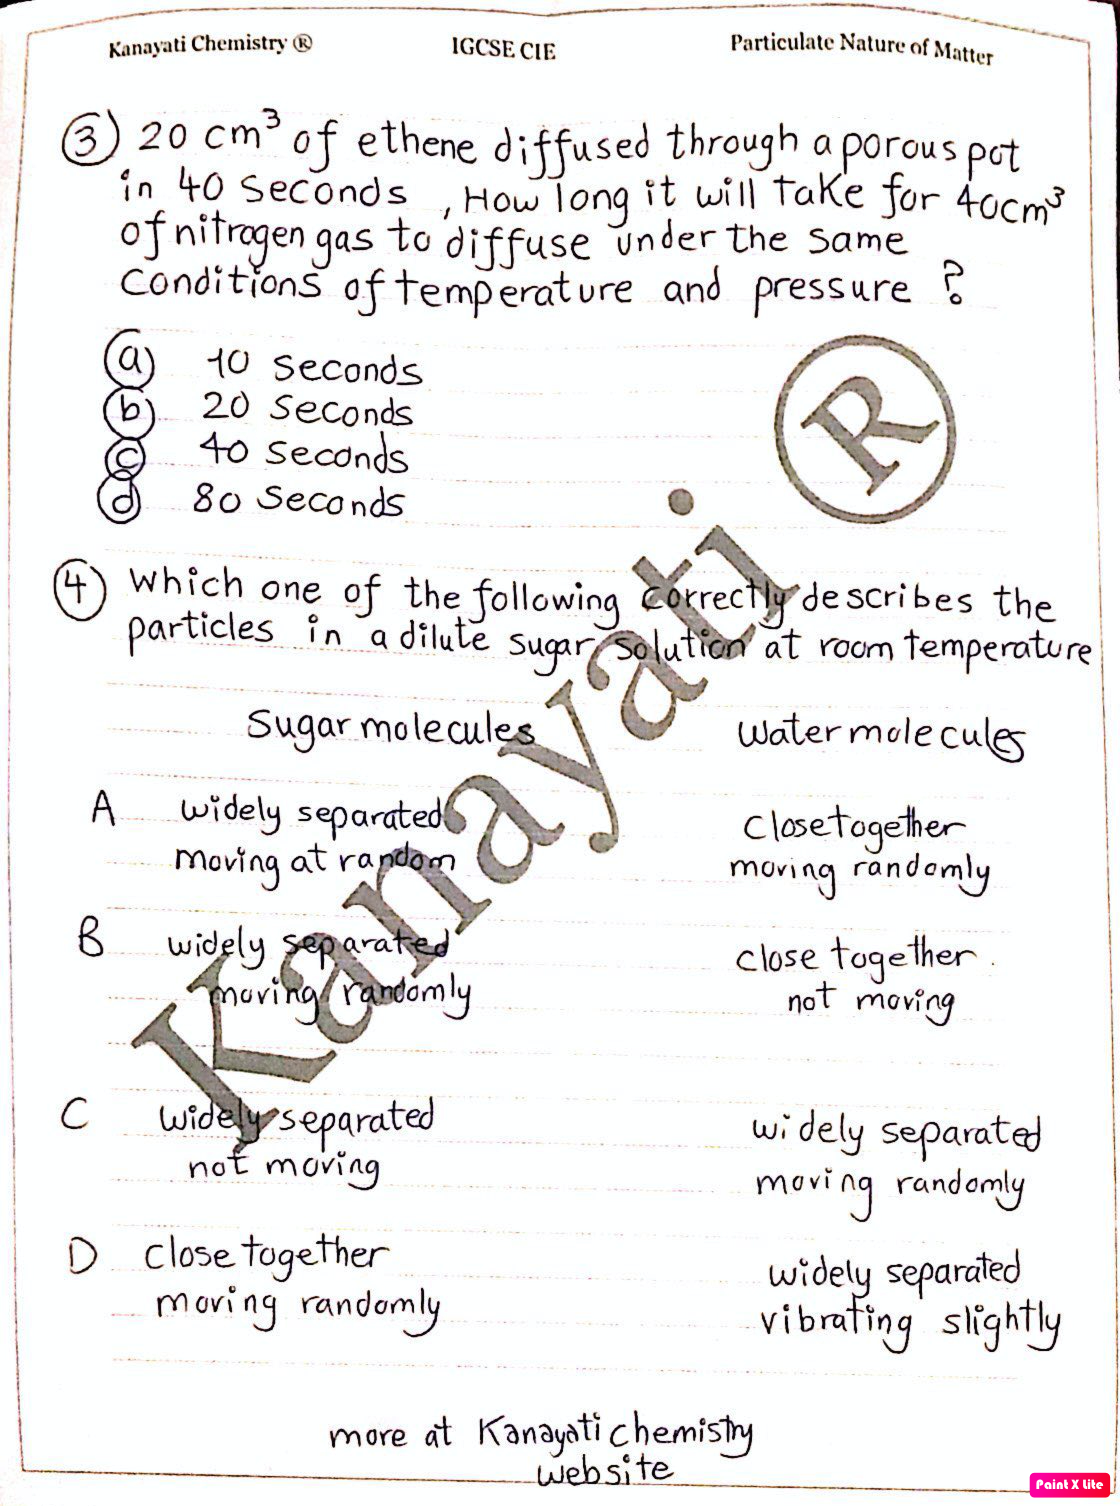 Kanayati Chemistry ® IGCSE CIE Particulate Nature of Matter
3 20 cm³ of ethene diffused through a porous pot
in 40 seconds , How long it will take for 40cm³
of nitrogen gas to diffuse under the same
conditions of temperature and pressure ?
a 10 seconds
b 20 seconds
c 40 seconds
d 80 seconds
4 which one of the following correctly describes the
particles in a dilute sugar solution at room temperature
Sugar molecules Water molecules
A widely separated close together
moving at random moving randomly
B widely separated close together
moving randomly not moving
C widely separated widely separated
not moving moving randomly
D close together widely separated
moving randomly vibrating slightly
Kanayati ®
more at Kanayati chemistry
website
Paint X Lite